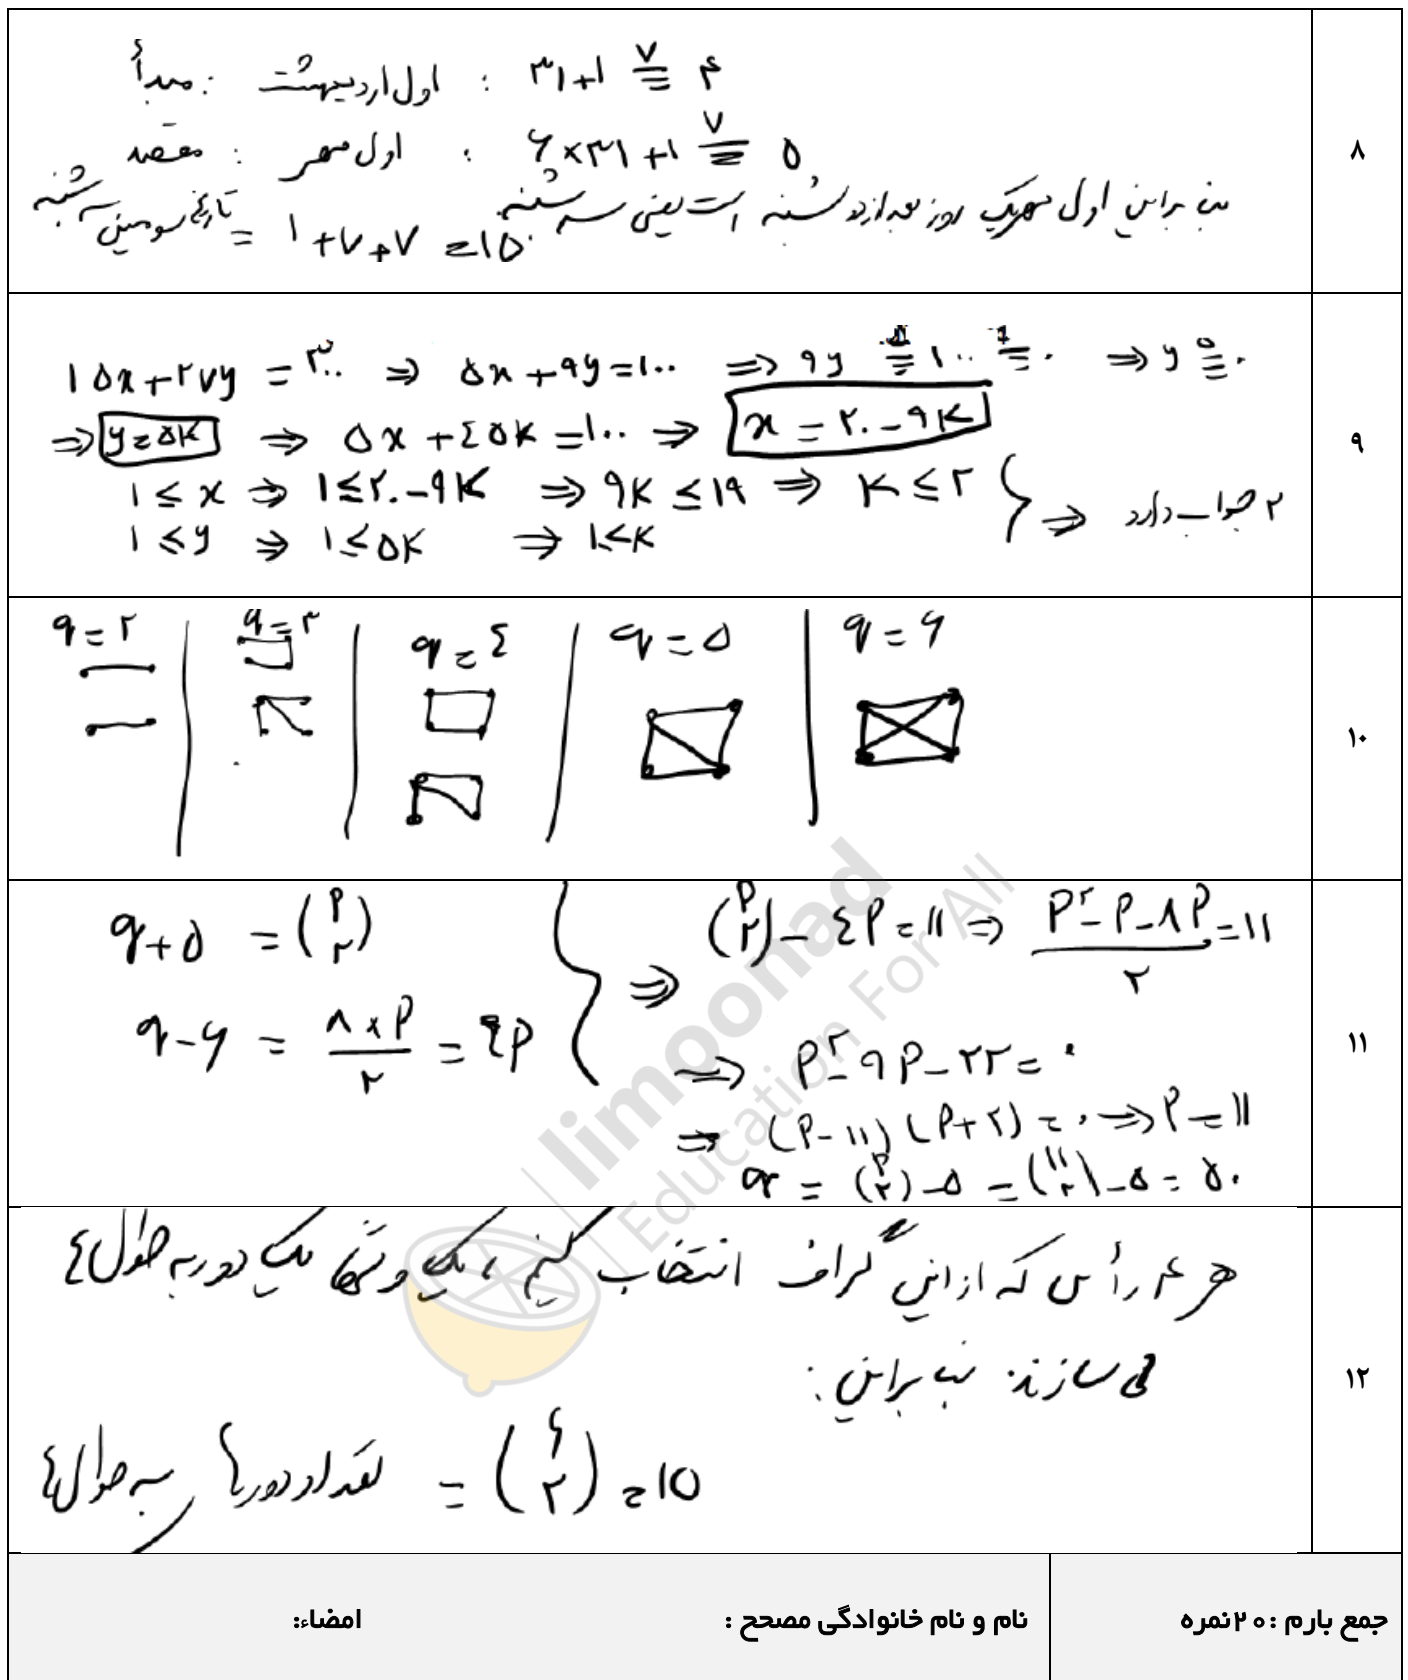 ۸
مبدأ : اول اردیبهشت : ۳۱+۱ ≡ ۴ (۷)
مقصد : اول مهر : ۶×۳۱+۱ ≡ ۵ (۷)
بنابراین اول مهر یک روز بعد از دوشنبه است یعنی سه شنبه.
تاریخ سومین سه شنبه = ۱+۷+۷=۱۵
۹
۱۵x+۲۷y = ۳۰۰ ⇒ ۵x+۹y=۱۰۰ ⇒ ۹y ≡ ۱۰۰ ≡ ۰ ⇒ y ≡ ۰ (۵)
⇒ y=۵k ⇒ ۵x+۴۵k=۱۰۰ ⇒ x=۲۰-۹k
۱≤x ⇒ ۱≤۲۰-۹k ⇒ ۹k≤۱۹ ⇒ k≤۲
۱≤y ⇒ ۱≤۵k ⇒ ۱≤k } ⇒ ۲ جواب دارد
۱۰
q=۲ | q=۳ | q=۴ | q=۵ | q=۶
۱۱
q+۵ = (p ۲) } ⇒ (p ۲) - ۴p = ۱۱ ⇒ (p²-p-۸p)/۲ = ۱۱
q-۶ = (۸×p)/۲ = ۴p
⇒ p²-۹p-۲۲=۰
⇒ (p-۱۱)(p+۲)=۰ ⇒ p=۱۱
q = (p ۲)-۵ = (۱۱ ۲)-۵ = ۵۰
۱۲
هر ۴ رأس که از این گراف انتخاب کنیم، یک و تنها یک دور به طول ۴
می سازند. بنابراین :
تعداد دورهای به طول ۴ = (۶ ۲) = ۱۵
limoonad
Education For All
جمع بارم :۲۰نمره
نام و نام خانوادگی مصحح :
امضاء: